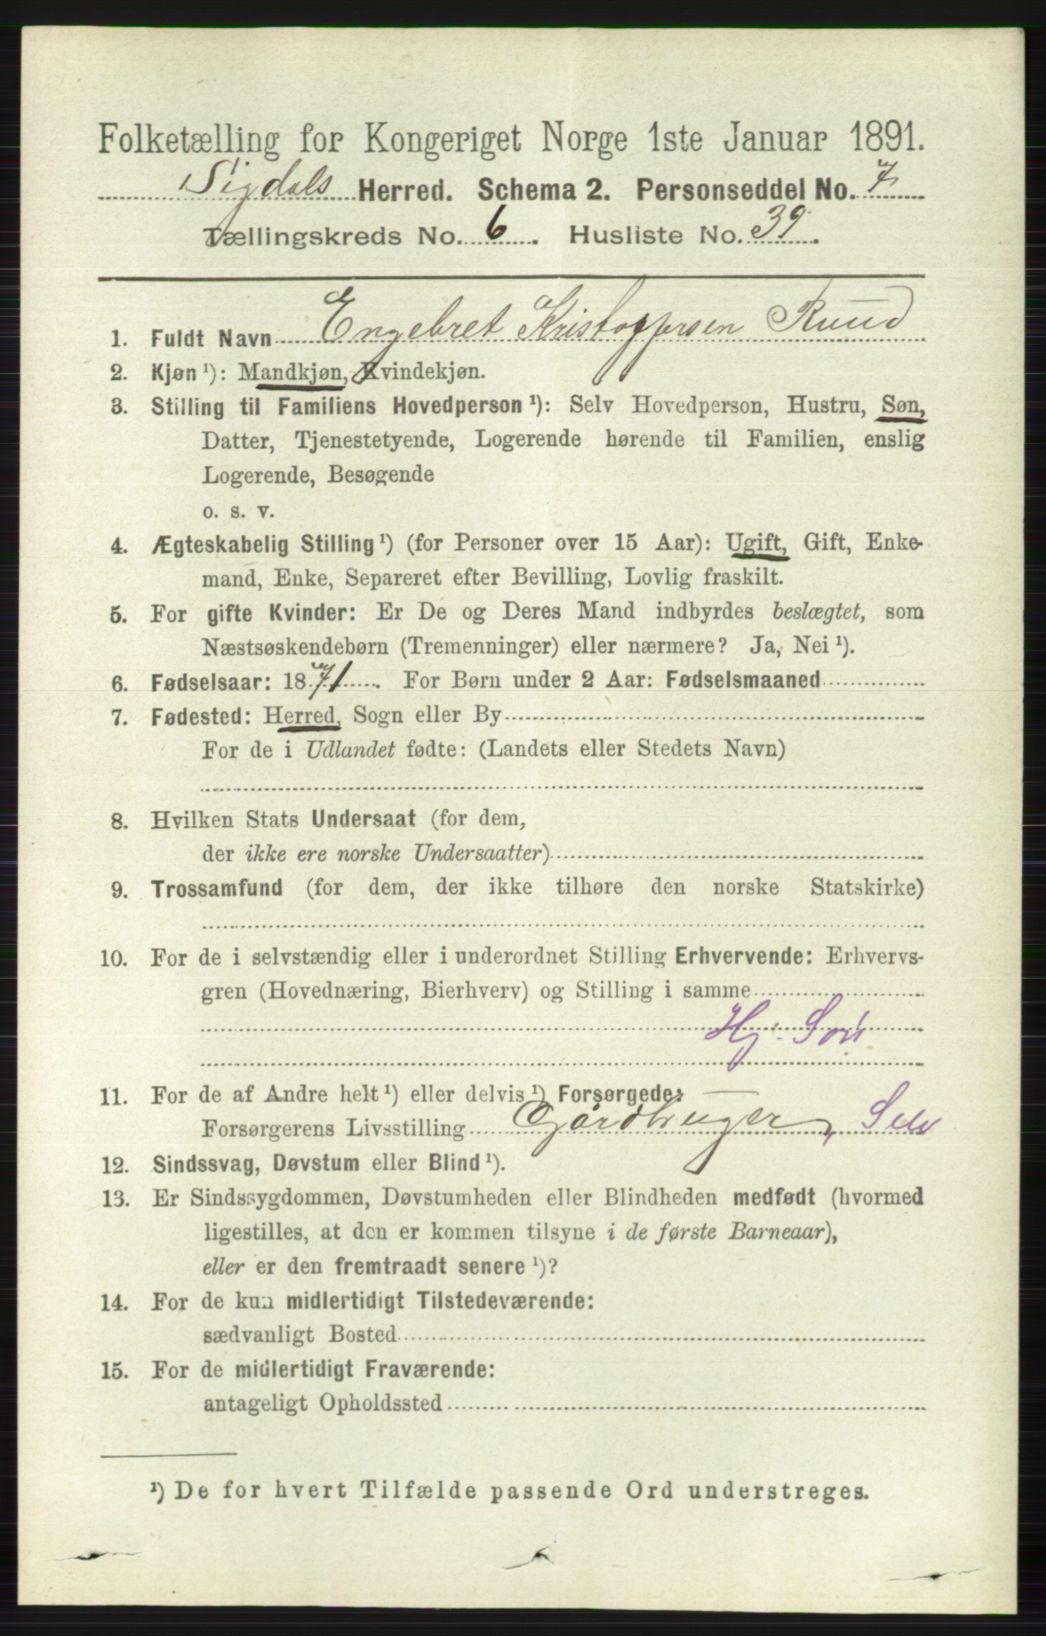 Folketælling for Kongeriget Norge 1ste Januar 1891.
Sigdals Herred. Schema 2. Personseddel No. 7
Tællingskreds No. 6. Husliste No. 39.
1. Fuldt Navn Engebret Kristoffersen Ruud
2. Kjøn ¹): Mandkjøn, Kvindekjøn.
3. Stilling til Familiens Hovedperson ¹): Selv Hovedperson, Hustru, Søn,
Datter, Tjenestetyende, Logerende hørende til Familien, enslig
Logerende, Besøgende
o. s. v.
4. Ægteskabelig Stilling ¹) (for Personer over 15 Aar): Ugift, Gift, Enke-
mand, Enke, Separeret efter Bevilling, Lovlig fraskilt.
5. For gifte Kvinder: Er De og Deres Mand indbyrdes beslægtet, som
Næstsøskendebørn (Tremenninger) eller nærmere? Ja, Nei ¹).
6. Fødselsaar: 1871. For Børn under 2 Aar: Fødselsmaaned
7. Fødested: Herred, Sogn eller By
For de i Udlandet fødte: (Landets eller Stedets Navn)
8. Hvilken Stats Undersaat (for dem,
der ikke ere norske Undersaatter)
9. Trossamfund (for dem, der ikke tilhøre den norske Statskirke)
10. For de i selvstændig eller i underordnet Stilling Erhvervende: Erhvervs-
gren (Hovednæring, Bierhverv) og Stilling i samme
Hj. Søn
11. For de af Andre helt ¹) eller delvis ¹) Forsørgede:
Forsørgerens Livsstilling Gårdbruger, Selv
12. Sindssvag, Døvstum eller Blind ¹).
13. Er Sindssygdommen, Døvstumheden eller Blindheden medfødt (hvormed
ligestilles, at den er kommen tilsyne i de første Barneaar),
eller er den fremtraadt senere ¹)?
14. For de kun midlertidigt Tilstedeværende:
sædvanligt Bosted
15. For de midlertidigt Fraværende:
antageligt Opholdssted
¹) De for hvert Tilfælde passende Ord understreges.